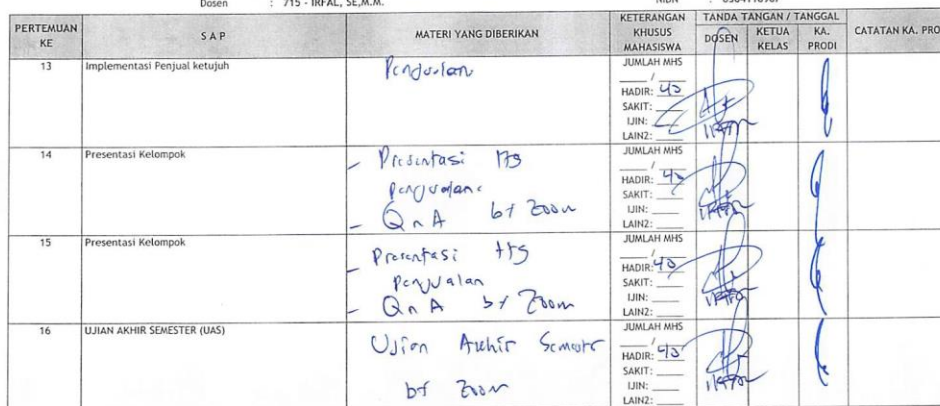 Dosen : 715 - IRFAL, SE,M.M.
PERTEMUAN KE
S A P
MATERI YANG DIBERIKAN
KETERANGAN KHUSUS MAHASISWA
TANDA TANGAN / TANGGAL
DOSEN
KETUA KELAS
KA. PRODI
CATATAN KA. PRO
13
Implementasi Penjual ketujuh
Penjualan
JUMLAH MHS
/
HADIR: 40
SAKIT:
IJIN:
LAIN2:
14
Presentasi Kelompok
- Presentasi ttg
penjualan
- QnA by Zoom
JUMLAH MHS
/
HADIR: 40
SAKIT:
IJIN:
LAIN2:
15
Presentasi Kelompok
- Presentasi ttg
penjualan
- QnA by Zoom
JUMLAH MHS
/
HADIR: 40
SAKIT:
IJIN:
LAIN2:
16
UJIAN AKHIR SEMESTER (UAS)
Ujian Akhir Semester
by Zoom
JUMLAH MHS
/
HADIR: 40
SAKIT:
IJIN:
LAIN2: